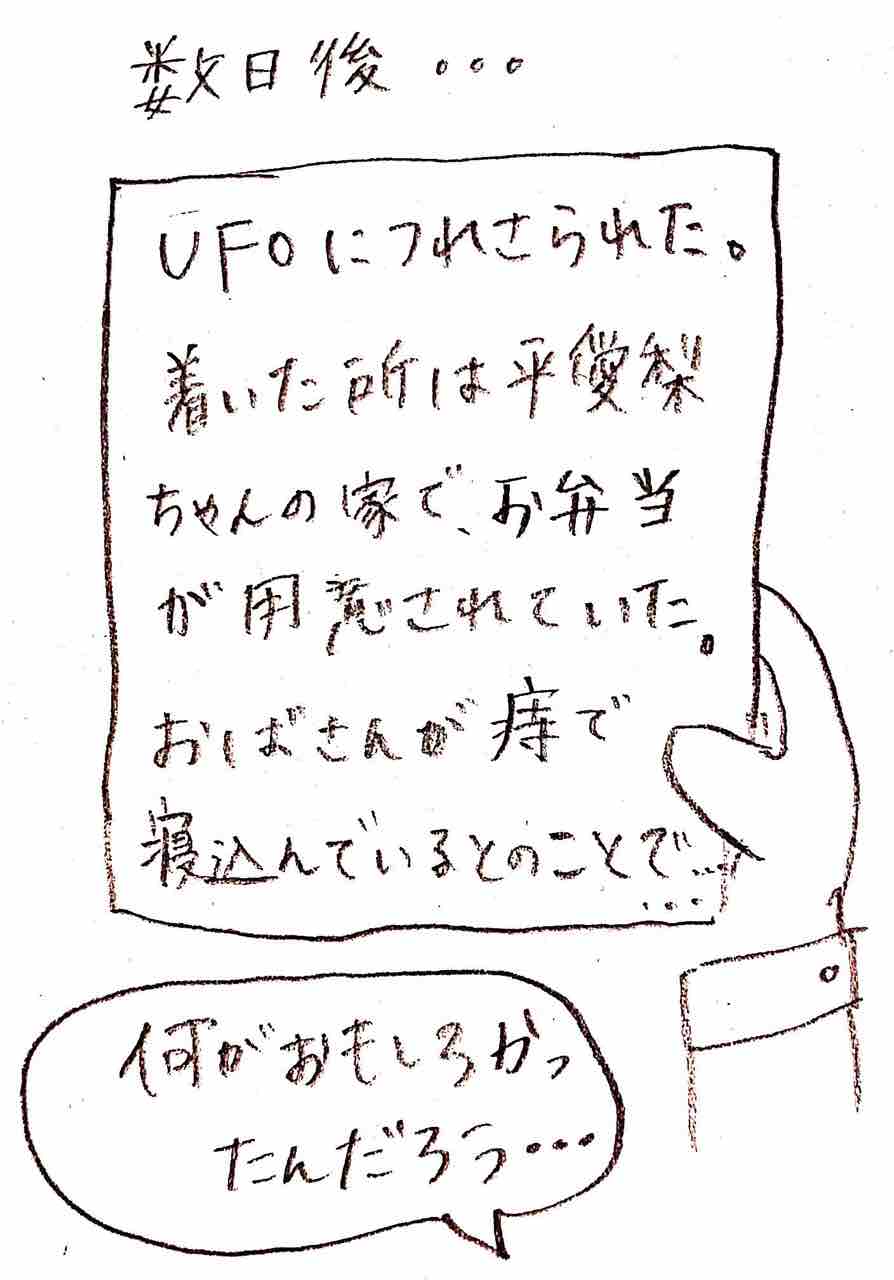 数日後...
UFOにつれさられた。
着いた所は平愛梨
ちゃんの家で、お弁当
が用意されていた。
おばさんが痔で
寝込んでいるとのことで...
...
何がおもしろかっ
たんだろう...